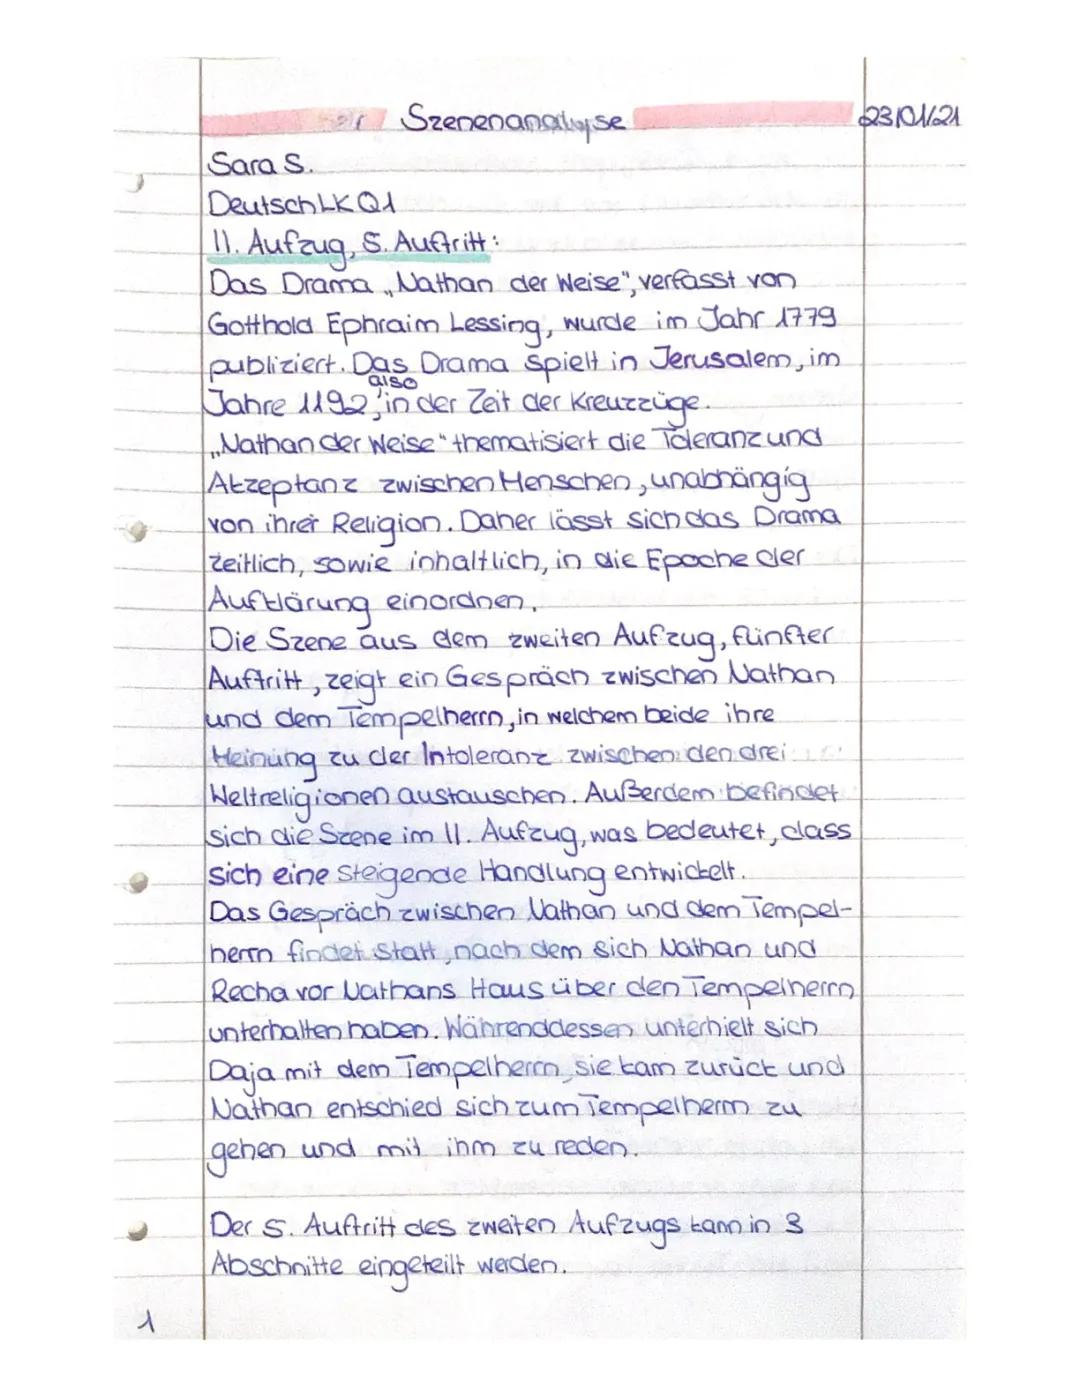 Szenenanalyse 23/01/21
Sara S.
Deutsch LK Q1
II. Aufzug, 5. Auftritt:
Das Drama „Nathan der Weise", verfasst von
Gotthold Ephraim Lessing, wurde im Jahr 1779
publiziert. Das Drama spielt in Jerusalem, im
also
Jahre 1192, in der Zeit der Kreuzzüge.
„Nathan der Weise" thematisiert die Toleranz und
Akzeptanz zwischen Menschen, unabhängig
von ihrer Religion. Daher lässt sich das Drama
zeitlich, sowie inhaltlich, in die Epoche der
Aufklärung einordnen.
Die Szene aus dem zweiten Aufzug, fünfter
Auftritt, zeigt ein Gespräch zwischen Nathan
und dem Tempelherrn, in welchem beide ihre
Meinung zu der Intoleranz zwischen den drei
Weltreligionen austauschen. Außerdem befindet
sich die Szene im II. Aufzug, was bedeutet, dass
sich eine steigende Handlung entwickelt.
Das Gespräch zwischen Nathan und dem Tempel-
herrn findet statt, nach dem sich Nathan und
Recha vor Nathans Haus über den Tempelherrn
unterhalten haben. Währenddessen unterhielt sich
Daja mit dem Tempelherrn, sie kam zurück und
Nathan entschied sich zum Tempelherrn zu
gehen und mit ihm zu reden.
Der 5. Auftritt des zweiten Aufzugs kann in 3
Abschnitte eingeteilt werden.
1